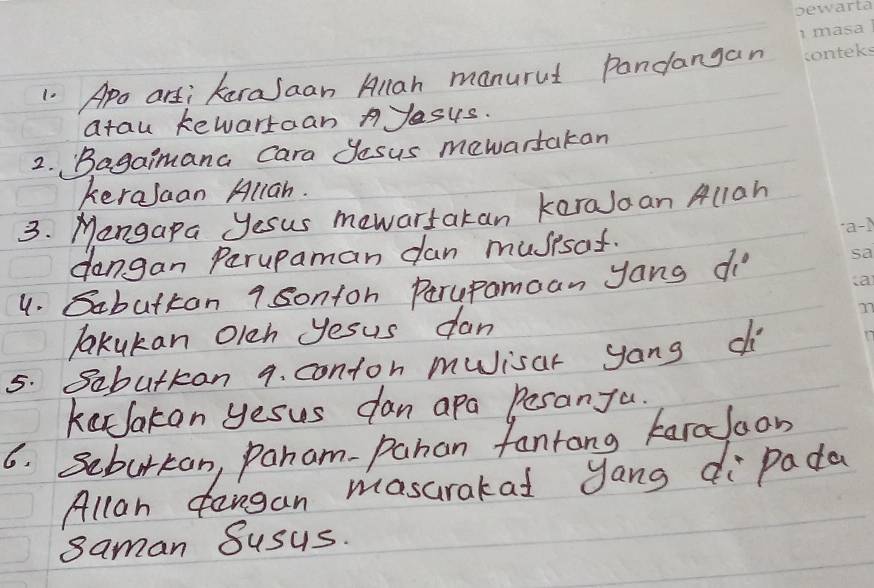 pewarta
masa
konteks
1. Apa arti kerajaan Allah manurut Pandangan
atau kewartaan A Yasus.
2. Bagaimana cara Yesus mewartakan
kerajaan Allah.
3. Mengapa Yesus mewartakan karajaan Allah
dangan Parupaman dan mujisat.
4. Sabutkan 9 sontoh Parupamaan yang di
lakukan Oleh Yesus dan
5. Sebutkan 9. contoh mujisat yang di
kerjakan Yesus dan apa Pesanja.
6. Sebutkan, Paham-Pahan tantang karajaan
Allah dengan masarakat yang di pada
saman Susus.